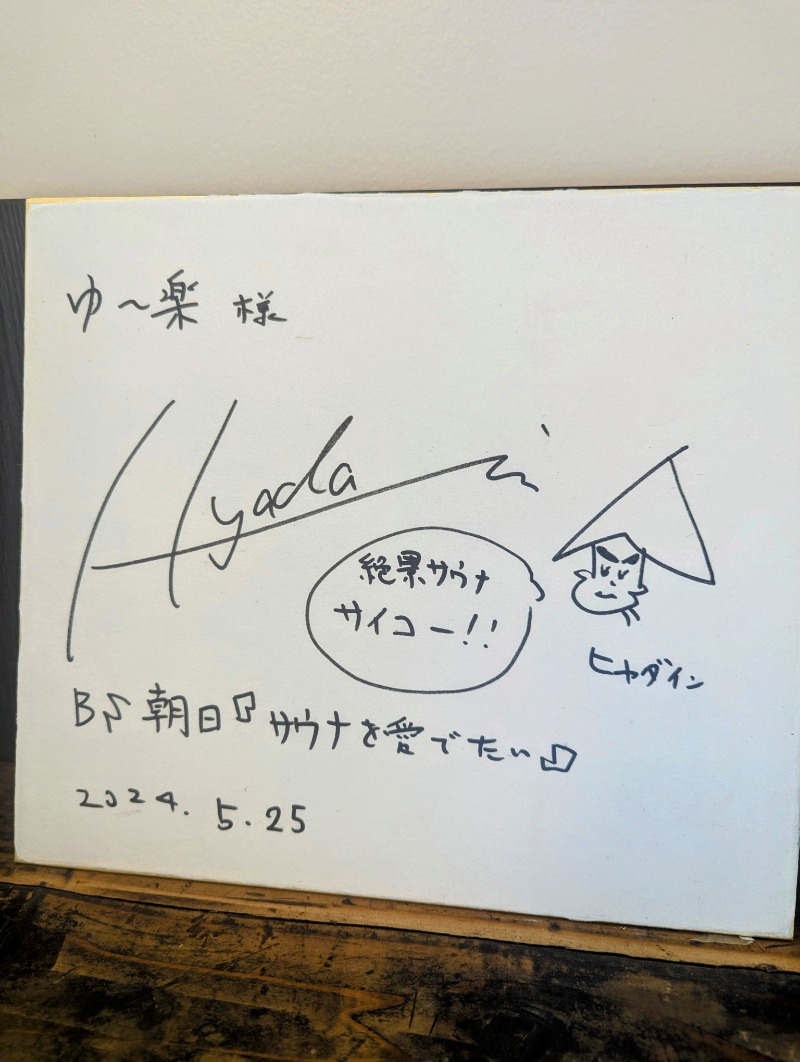 ゆ〜楽 様
Hyadain
絶景サウナ
サイコー!!
ヒャダイン
BS朝日『サウナを愛でたい』
2024.5.25